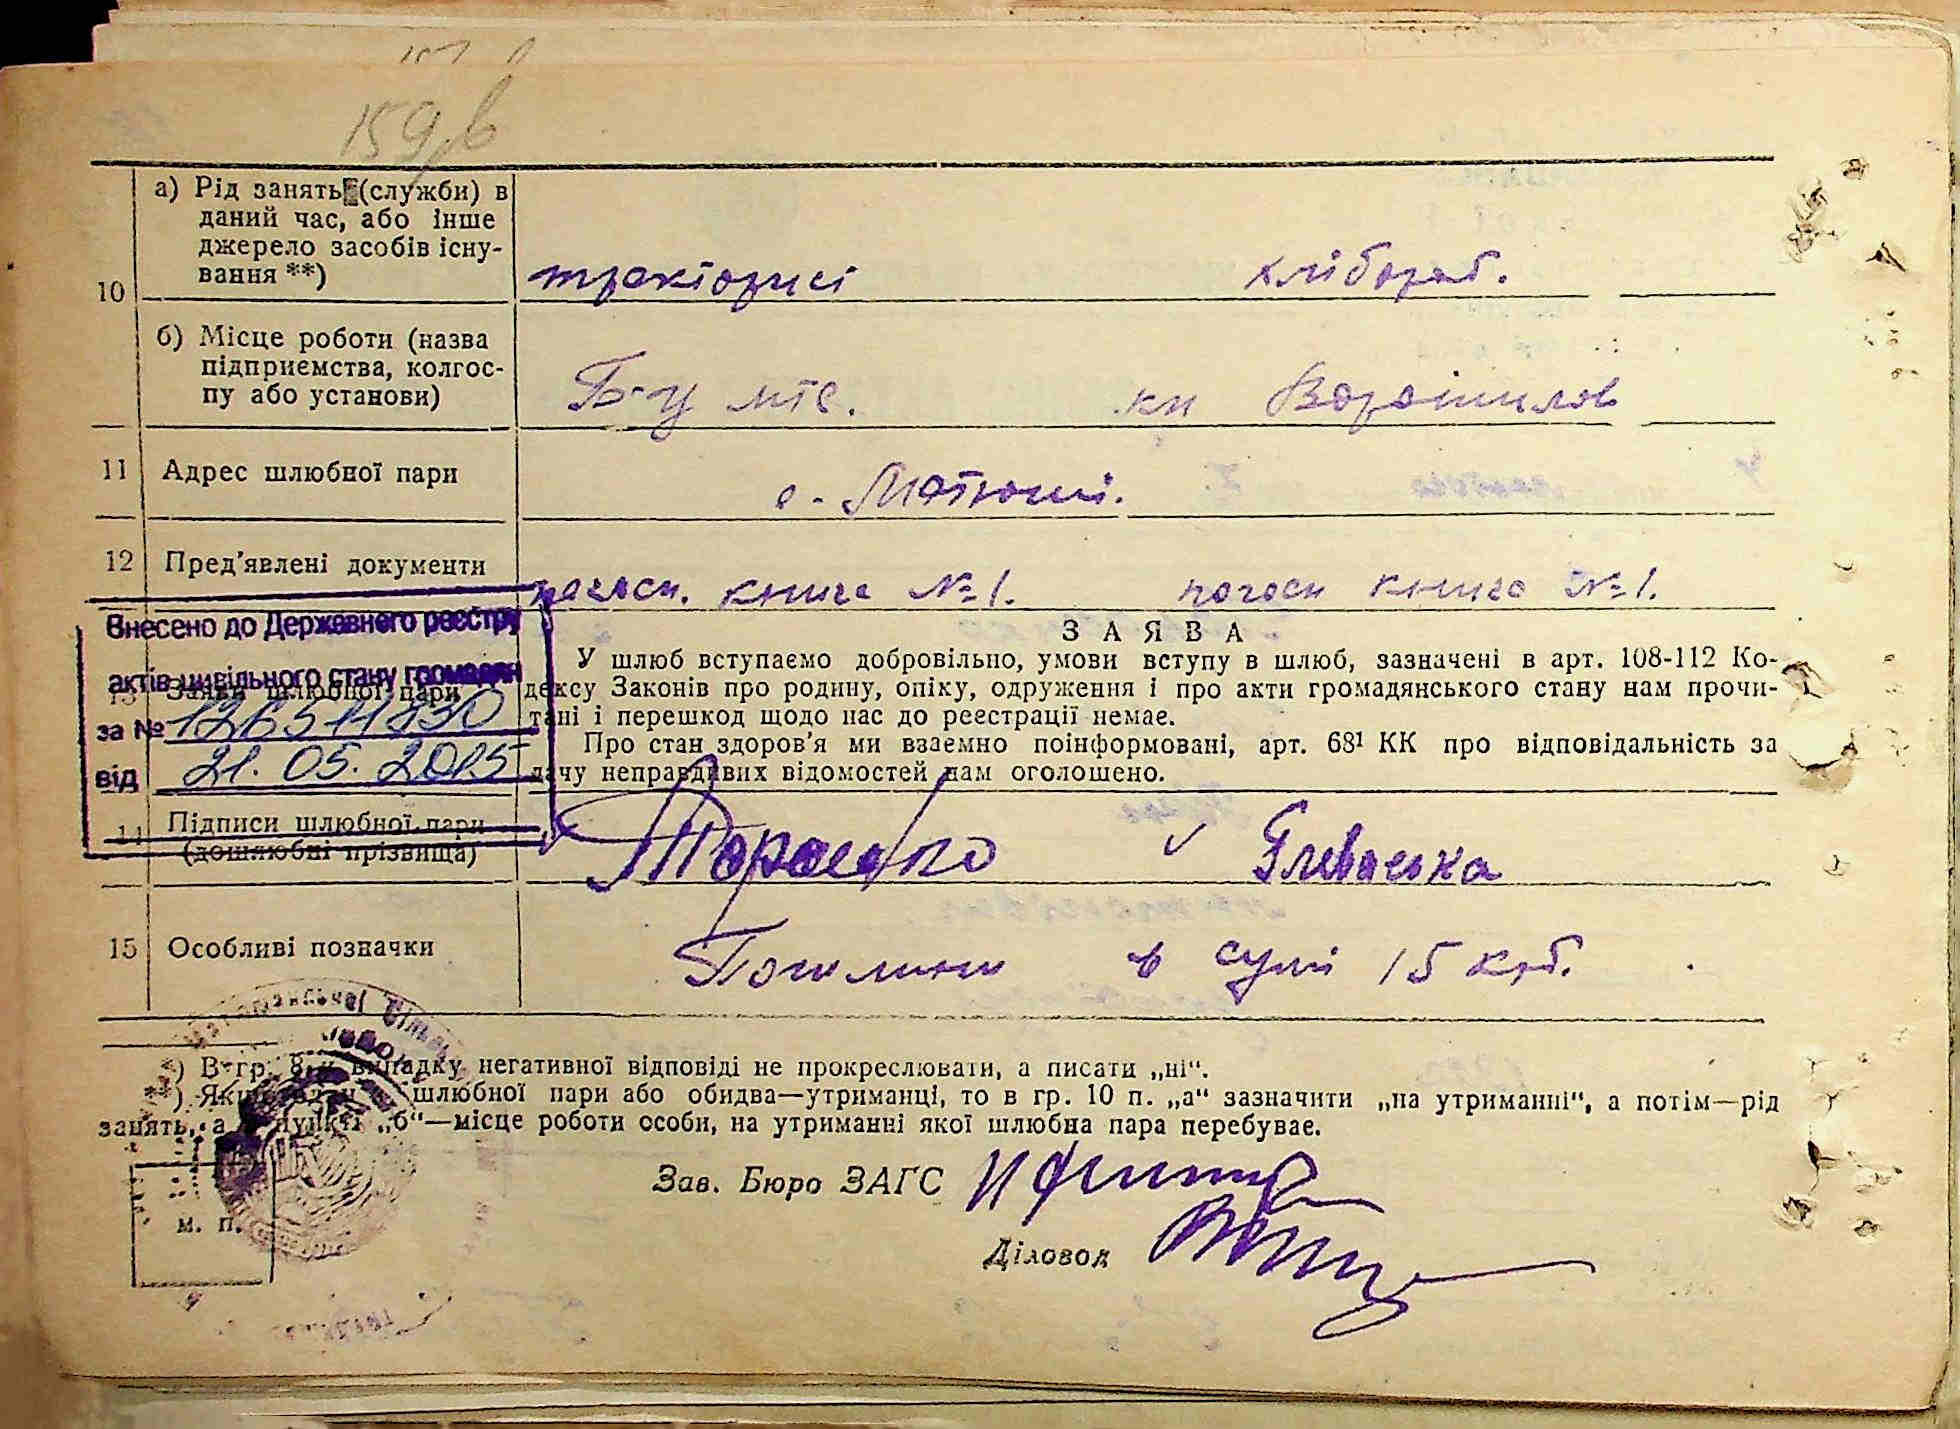 159 в
10
а) Рід занять (служби) в
даний час, або інше
джерело засобів існу-
вання **)
тракторист
хлібороб.
б) Місце роботи (назва
підприємства, колгос-
пу або установи)
Б-Ц мтс.
Ворошилов
11
Адрес шлюбної пари
с. Матюші.
12
Пред'явлені документи
погосп. книга № 1.
погосп книга № 1.
Внесено до Державного реєстру
актів цивільного стану громадян
за № 126511830
від 21.05.2015
13
Заяви шлюбної пари
З А Я В А
У шлюб вступаємо добровільно, умови вступу в шлюб, зазначені в арт. 108-112 Ко-
дексу Законів про родину, опіку, одруження і про акти громадянського стану нам прочи-
тані і перешкод щодо нас до реєстрації немає.
Про стан здоров'я ми взаємно поінформовані, арт. 68¹ КК про відповідальність за
дачу неправдивих відомостей нам оголошено.
14
Підписи шлюбної пари
(дошлюбні прізвища)
Тарасенко
Глеваська
15
Особливі позначки
в сумі 15 крб.
*) В гр. 8 у випадку негативної відповіді не прокреслювати, а писати „ні“.
**) Якщо один з шлюбної пари або обидва—утриманці, то в гр. 10 п. „а“ зазначити „на утриманні“, а потім—рід
занять, а в пункті „б“—місце роботи особи, на утриманні якої шлюбна пара перебуває.
м. п.
Зав. Бюро ЗАГС
Діловод